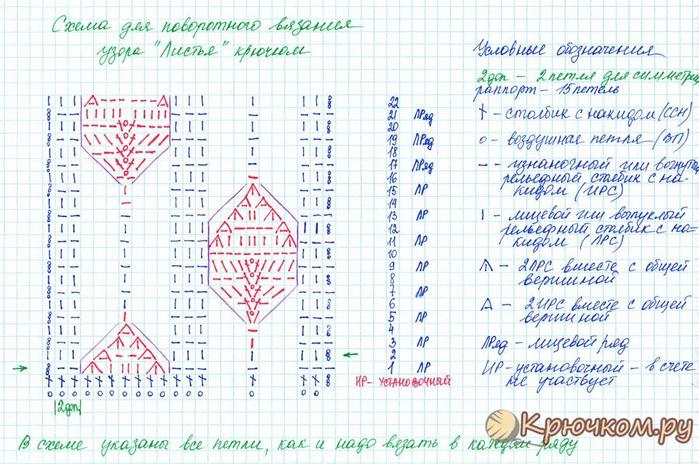 Схема для поворотного вязания
узора "Листья" крючком
Условные обозначения
2доп – 2 петля для симметрии
раппорт – 15 петель
– столбик с накидом (ССН)
– воздушная петля – (ВП)
– изнаночный или вогнутый
рельефный столбик с на-
кидом (ИРС)
– лицевой или выпуклый
рельефный столбик с на-
кидом (ЛРС)
– 2ЛРС вместе с общей
вершиной
– 2ИРС вместе с общей
вершиной
ЛРяд – лицевой ряд
ИР – установочный – в счете
не участвует
22
21 ЛРяд
20
19 ЛРяд
18
17 ЛРяд
16
15 ЛР
14
13 ЛР
12
11 ЛР
10
9 ЛР
8
7 ЛР
6
5 ЛР
4
3 ЛР
2
1 ЛР
ИР – установочный
2доп
В схеме указаны все петли, как и надо везать в каждом ряду
Крючком.ру